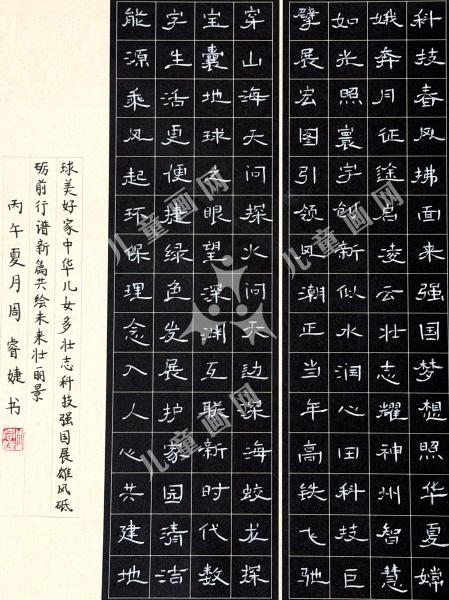 科技春风拂面来强国梦想照华夏嫦
娥奔月征途启凌云壮志耀神州智慧
如光照寰宇创新似水润心田科技巨
擘展宏图引领风潮正当年高铁飞驰
穿山海天问探火问天边深海蛟龙探
宝囊地球之眼望深渊互联新时代数
字生活更便捷绿色发展护家园清洁
能源乘风起环保理念入人心共建地
球美好家中华儿女多壮志科技强国展雄风砥
砺前行谱新篇共绘未来壮丽景
丙午夏月周睿婕书
儿童画网
儿童画网
儿童画网
儿童画网